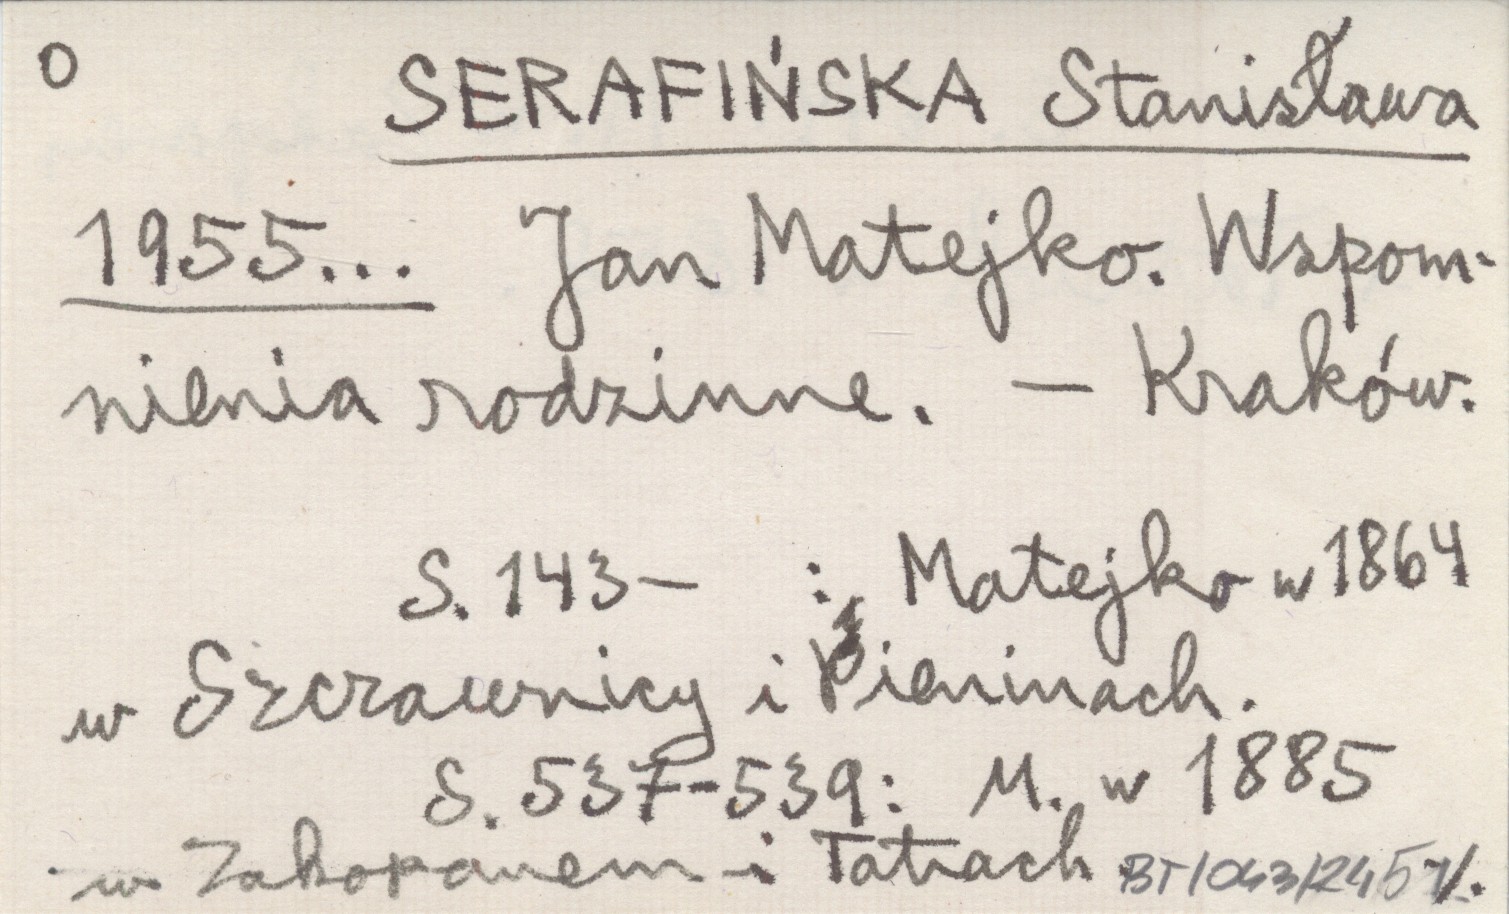 O SERAFIŃSKA Stanisława
1955... Jan Matejko. Wspom-
nienia rodzinne. – Kraków.
S. 143– : Matejko w 1864
w Szczawnicy i Pieninach.
S. 537-539: M. w 1885
w Zakopanem i Tatrach.